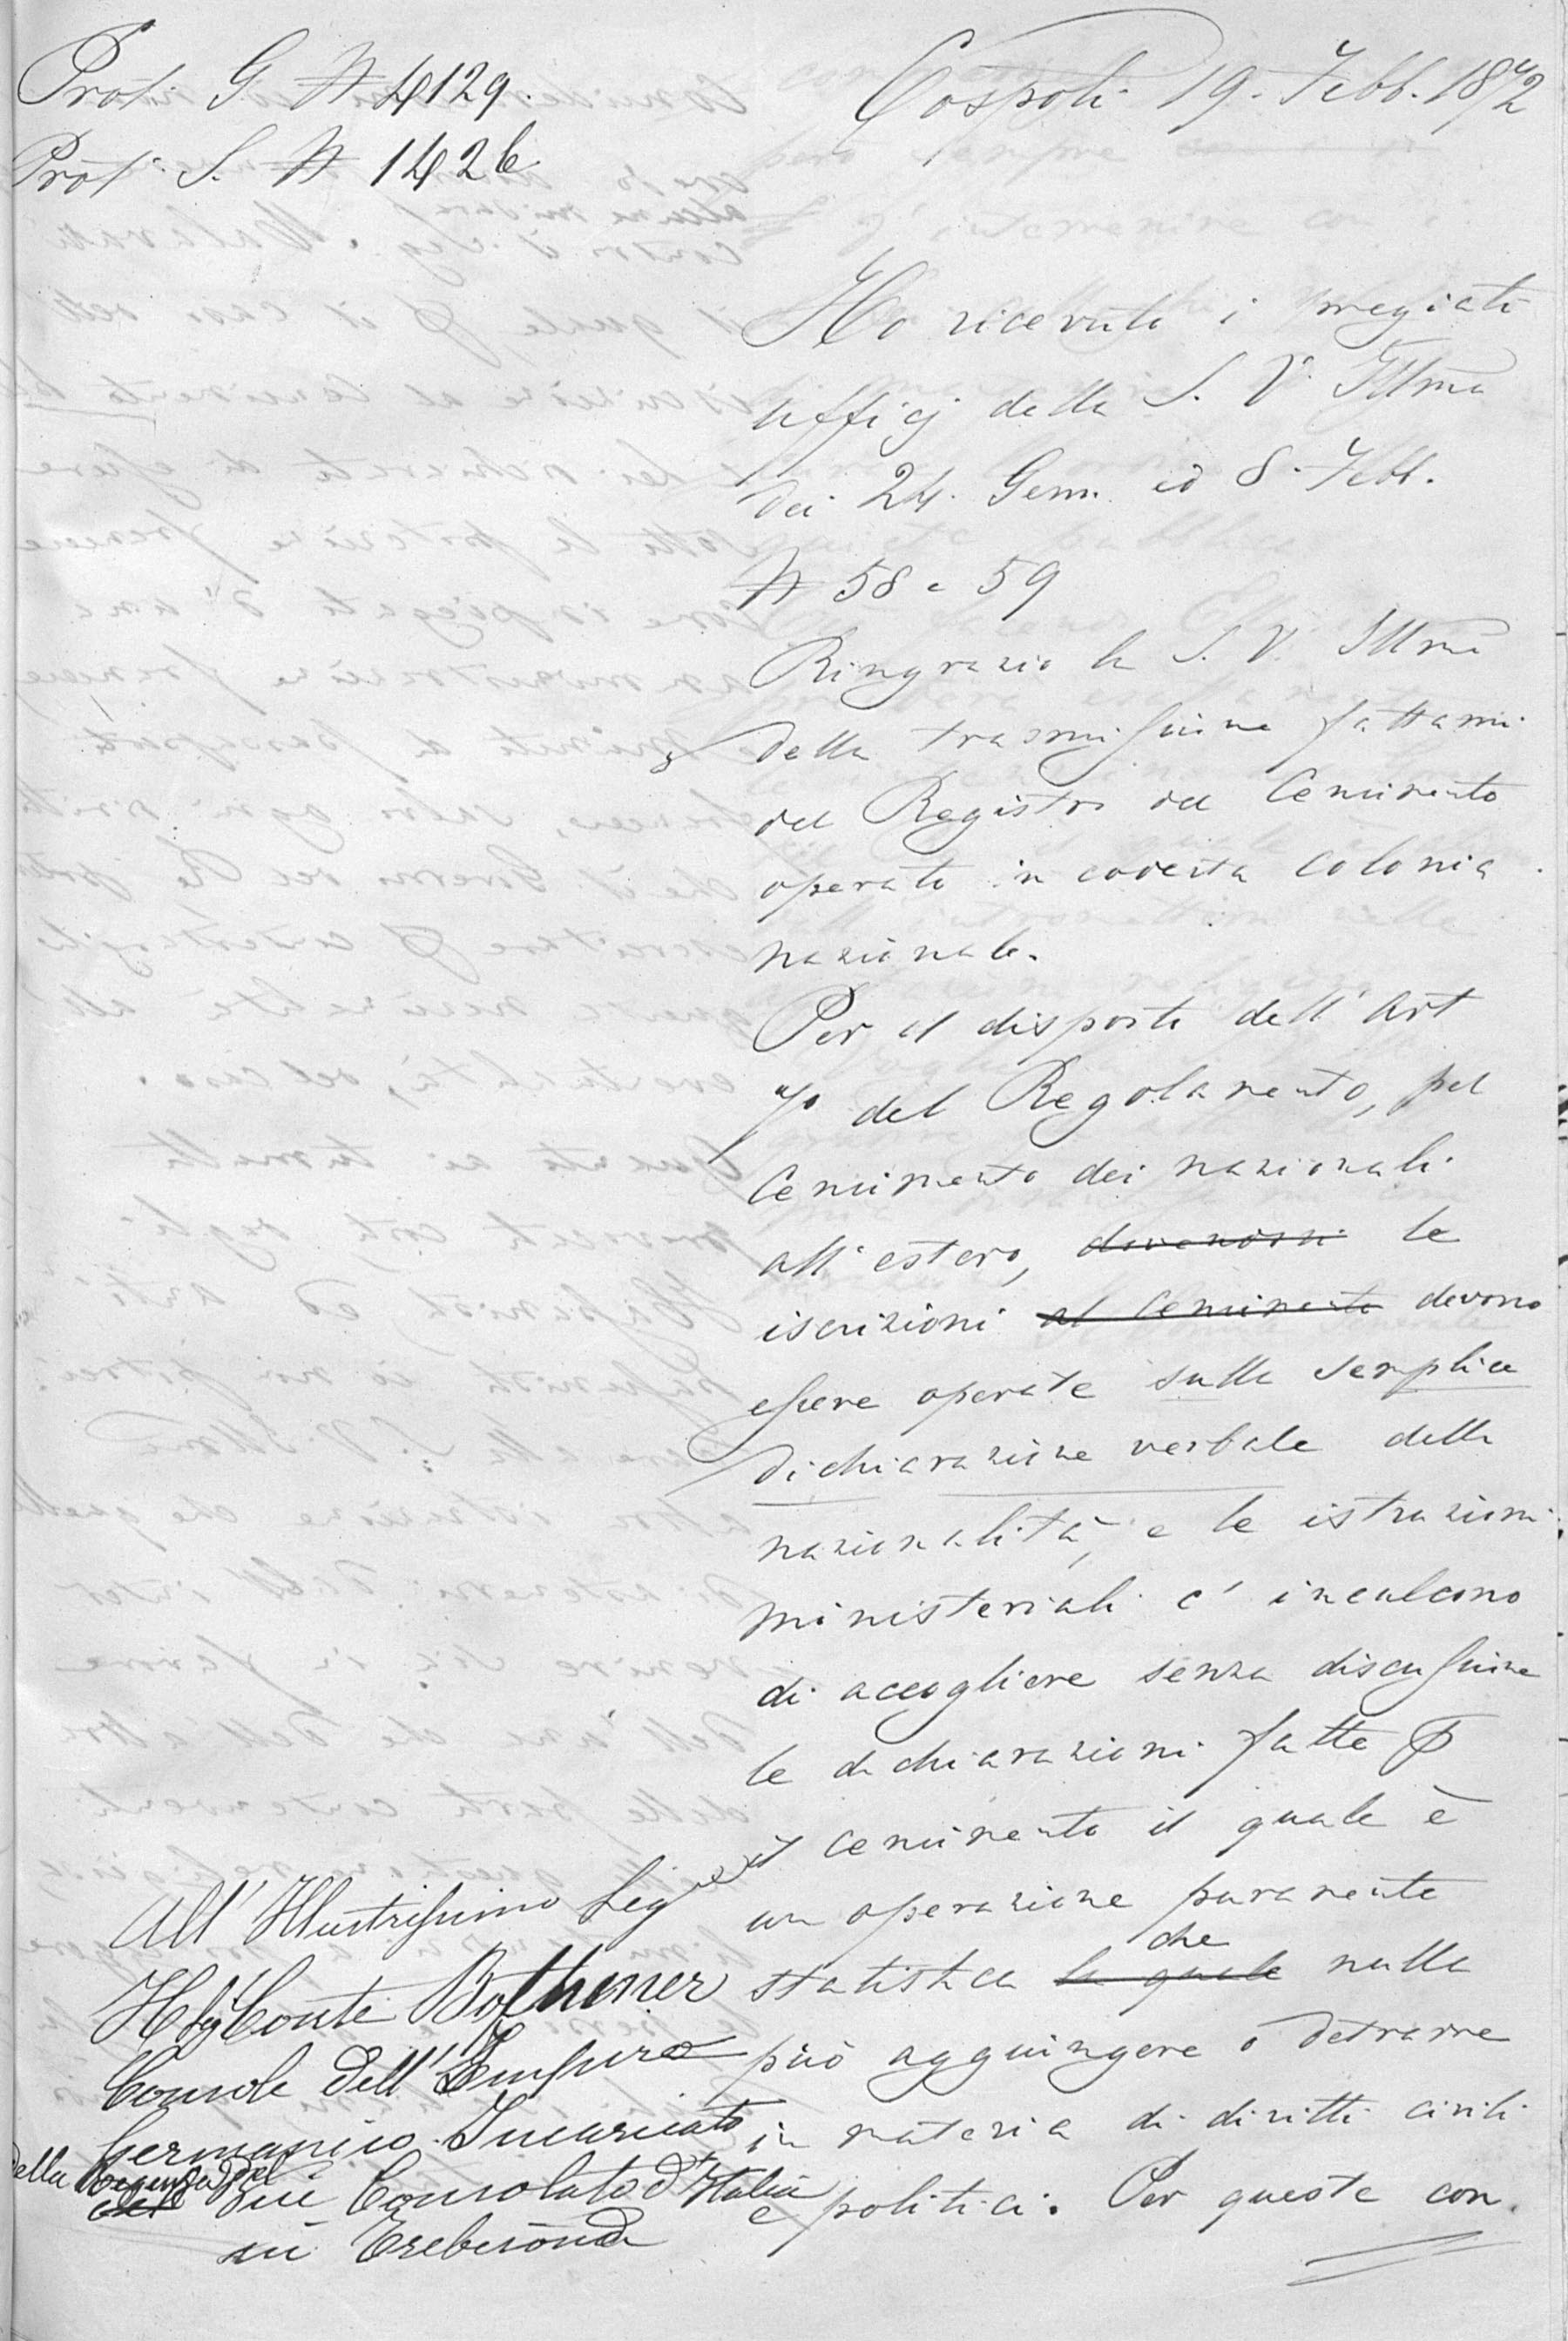 Prot. G. N 4129.
Prot. S. N 1426
Cospoli 19. Febb. 1872
Ho ricevuto i pregiati
ufficj della S. V. Illma
dei 24. Genn. ed 8. Febb.
N 58 e 59
Ringrazio la S. V. Illma
della trasmissione fattami
del Registro del Censimento
operato in codesta colonia
nazionale.
Per il disposto dell' Art
7º del Regolamento, pel
Censimento dei nazionali
all' estero, le
iscrizioni al Censimento devono
essere operate sulla semplice
dichiarazione verbale della
nazionalità, e le istruzioni
ministeriali c' inculcano
di accogliere senza discussione
le dichiarazioni fatte P
il censimento il quale è
un operazione puramente
che
statistica la quale nulla
può aggiungere o detrarre
in materia di diritti civili
e politici. Per queste con
All' Illustrissimo Sigr
Il Sig Conte Bothmer
Console dell' Impero
Germanico. Incaricato
della Reggenza del
Consolato d' Italia
in Trebisonda